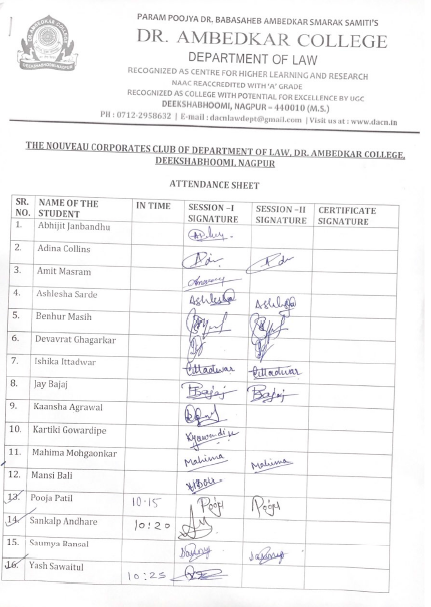 PARAM POOJYA DR. BABASAHEB AMBEDKAR SMARAK SAMITI'S
DR. AMBEDKAR COLLEGE
DEPARTMENT OF LAW
RECOGNIZED AS CENTRE FOR HIGHER LEARNING AND RESEARCH
NAAC REACCREDITED WITH 'A' GRADE
RECOGNIZED AS COLLEGE WITH POTENTIAL FOR EXCELLENCE BY UGC
DEEKSHABHOOMI, NAGPUR – 440010 (M.S.)
PH : 0712-2958632 | E-mail : dacnlawdept@gmail.com | Visit us at : www.dacn.in
THE NOUVEAU CORPORATES CLUB OF DEPARTMENT OF LAW, DR. AMBEDKAR COLLEGE,
DEEKSHABHOOMI, NAGPUR
ATTENDANCE SHEET
SR. NO. NAME OF THE STUDENT IN TIME SESSION –I SIGNATURE SESSION –II SIGNATURE CERTIFICATE SIGNATURE
1. Abhijit Janbandhu
2. Adina Collins
3. Amit Masram
4. Ashlesha Sarde Ashlesha Ashlesha
5. Benhur Masih
6. Devavrat Ghagarkar
7. Ishika Ittadwar Ittadwar Ittadwar
8. Jay Bajaj Bajaj Bajaj
9. Kaansha Agrawal
10. Kartiki Gowardipe
11. Mahima Mohgaonkar Mahima Mahima
12. Mansi Bali
13. Pooja Patil 10-15 Pooja Pooja
14. Sankalp Andhare 10:20
15. Saumya Bansal
16. Yash Sawaitul 10:25